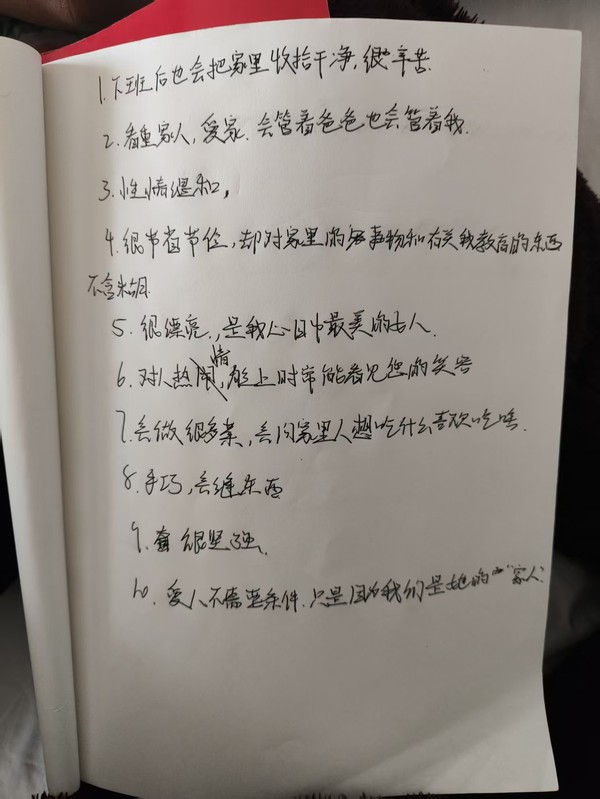 1.下班后也会把家里收拾干净,很辛苦.
2.看重家人,爱家.会管着爸爸也会管着我.
3.性情温和,
4.很节省节俭,却对家里的事物和有关我教育的东西
不含糊.
5.很漂亮.,是我心目中最美的女人.
6.对人热情,脸上时常能看见您的笑容
7.会做很多菜,会问家里人想吃什么喜欢吃啥.
8.手巧,会缝东西
9.很坚强.
10.爱人不需要条件.只是因为我们是她的"家人".